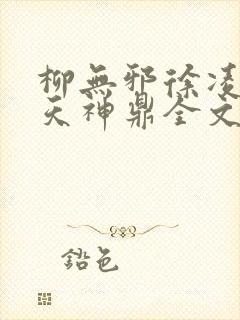 柳無邪徐凌
天神鼎全文
鉛色